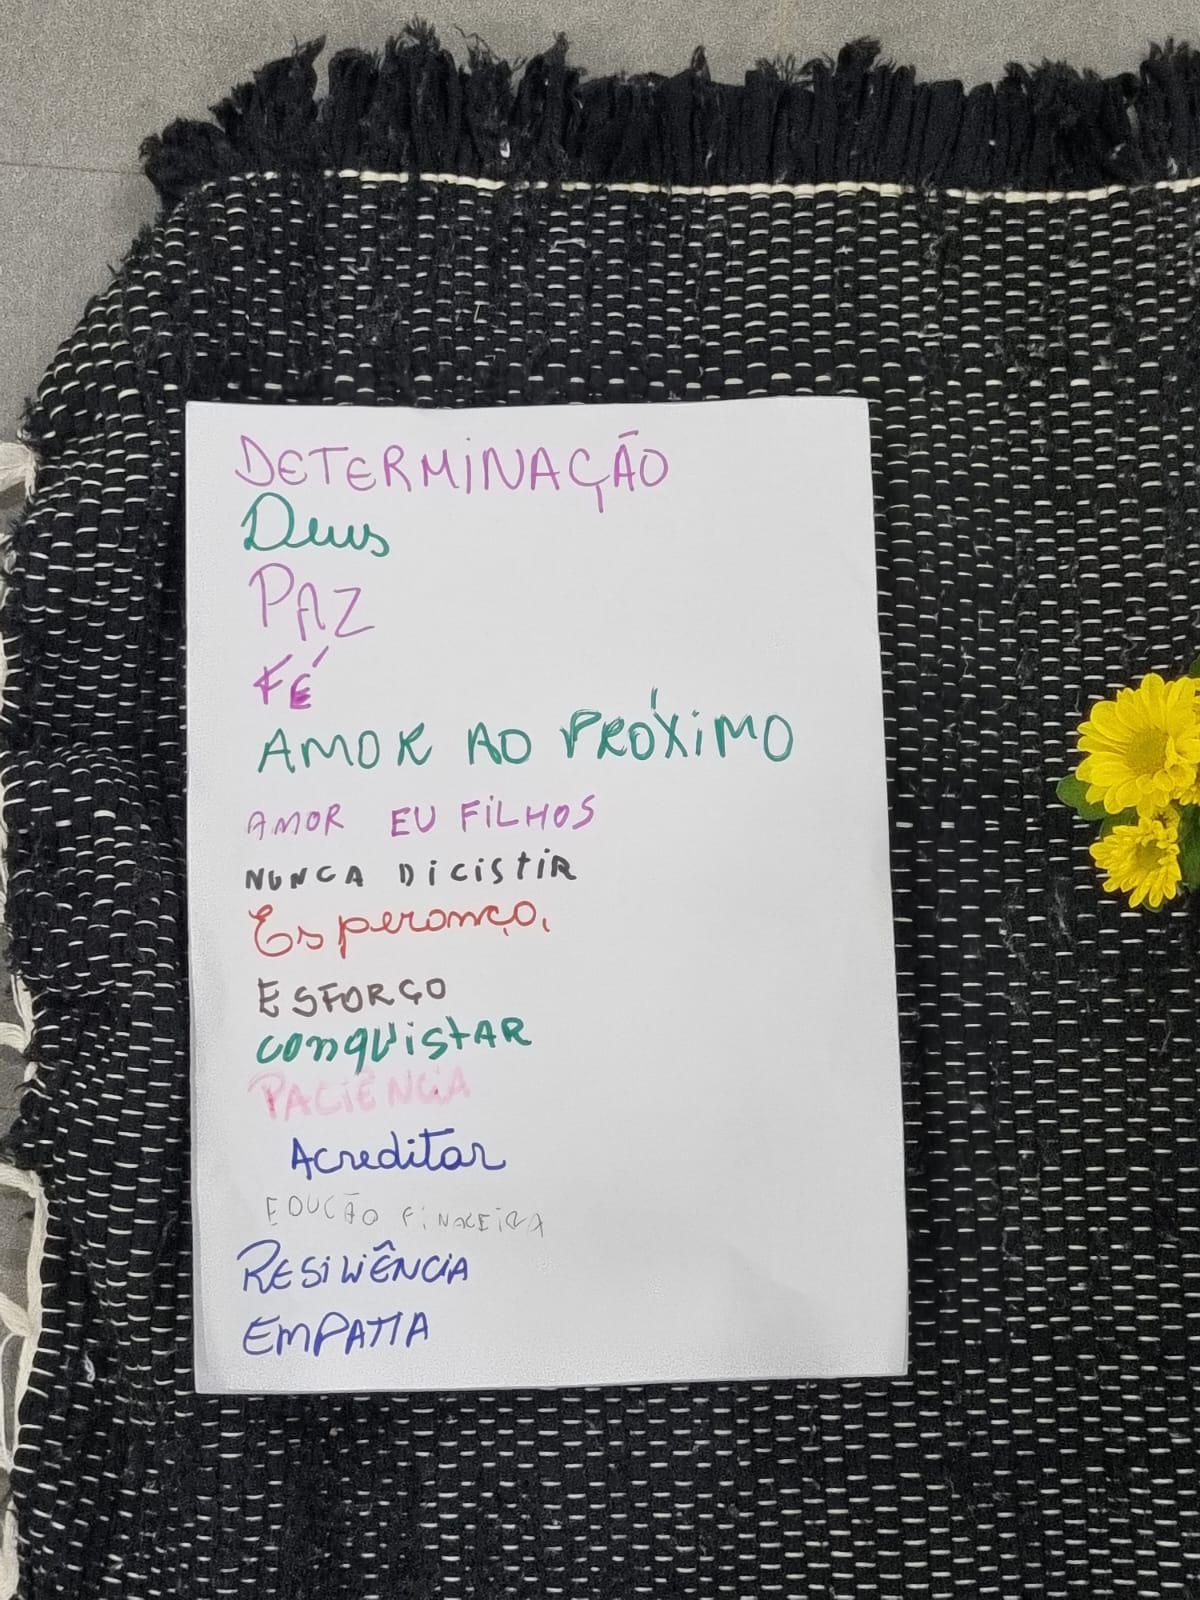 DETERMINAÇÃO
Deus
PAZ
FÉ
AMOR AO PRÓXIMO
AMOR EU FILHOS
NUNCA DICISTIR
Esperança,
ESFORÇO
conquistAR
PACIÊNCIA
Acreditar
EDUCÃO FINACEIRA
RESILIÊNCIA
EMPATIA